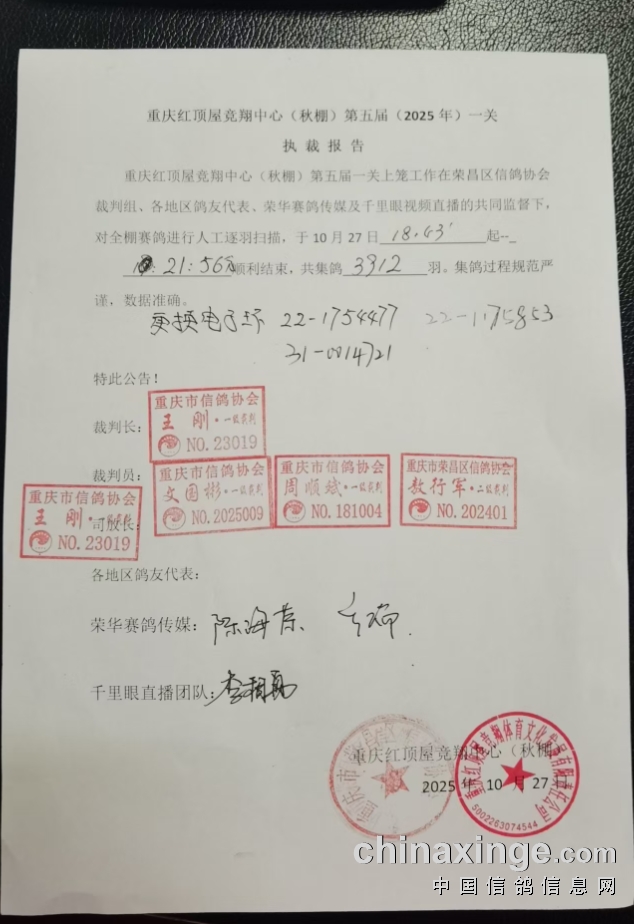 重庆红顶屋竞翔中心（秋棚）第五届（2025 年）一关
执 裁 报 告
重庆红顶屋竞翔中心（秋棚）第五届一关上笼工作在荣昌区信鸽协会
裁判组、各地区鸽友代表、荣华赛鸽传媒及千里眼视频直播的共同监督下，
对全棚赛鸽进行人工逐羽扫描，于 10 月 27 日 18.43' 起--
21:56 顺利结束，共集鸽 3912 羽。集鸽过程规范严
谨，数据准确。
更换电子环 22-1754477 22-1175853
31-0014721
特此公告！
重庆市信鸽协会
裁判长： 王刚·一级裁判
NO.23019
裁判员：
重庆市信鸽协会 重庆市信鸽协会 重庆市荣昌区信鸽协会
文国彬·一级裁判 周顺斌·一级裁判 敖行军·二级裁判
NO.2025009 NO.181004 NO.202401
重庆市信鸽协会
王刚· 司放长：
NO.23019
各地区鸽友代表：
荣华赛鸽传媒： 陈海
千里眼直播团队： 李
重庆红顶屋竞翔中心（秋棚）
2025 年 10 月 27
5002263074544
chinaxinge.com
中国信鸽信息网